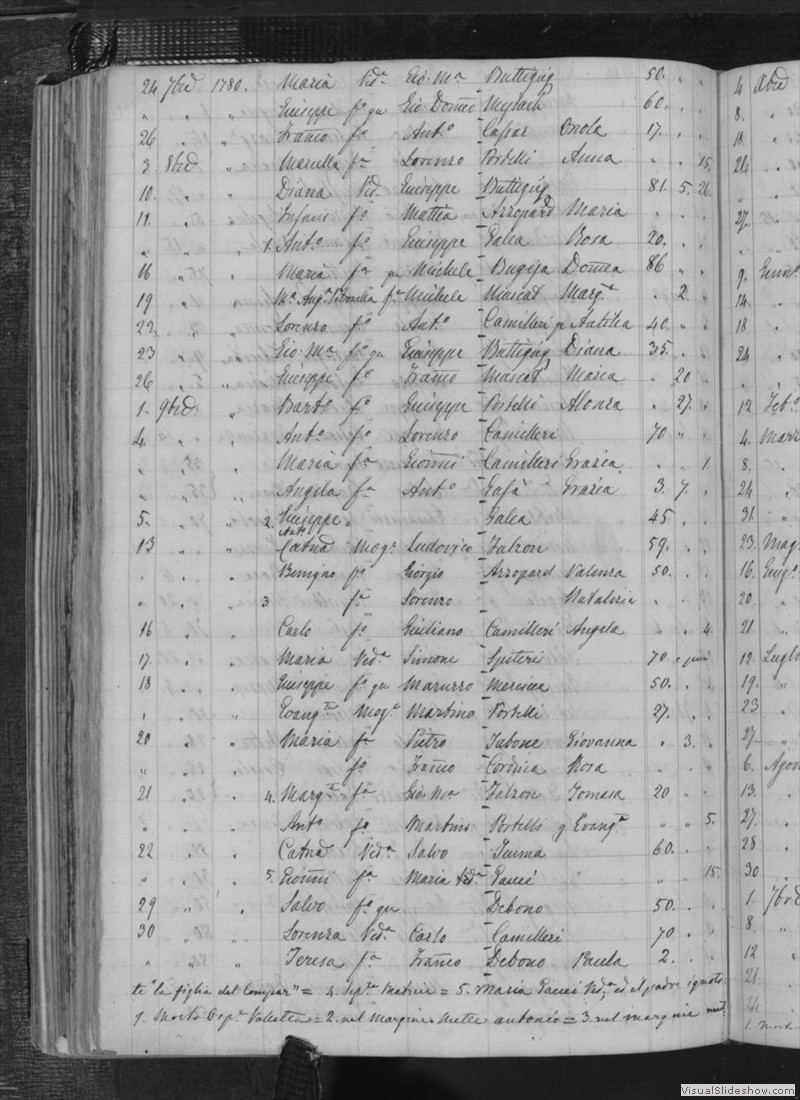 24 7bre 1780. Maria Vid.ª Gio: M.ª Buttigig 50. " "
" " " Giuseppe f.º qu Gio: Dom.co 60. " "
26 " " Franco f.º Ant.º Casiar Orsola 17. " "
3 8bre. " Mariella f.ª Lorenzo Portelli Anna " " 15.
10. " " Diana Vid. Giuseppe Buttigig 81. 5. 26.
11. " " f.º Mattia Azzopard Maria " " "
" " " 1. Ant.º f.º Giuseppe Galea Rosa 20. " "
16 " " Maria f.ª qu Michele Bugeja Domca 86 " "
19 " " M.ª Ang.ª Petronilla f.ª Michele Muscat Marg.ª " 2. "
22 " " Lorenzo f.º Ant.º Camilleri 40. " "
23 " " Gio: M.ª f.º qu Giuseppe Buttigig Diana 35. " "
26 " " Giuseppe f.º Franco Muscat Maria " 20 "
1. 9bre. " Bart.º f.º Giuseppe Portelli Alonza " 27. "
4. " " Ant.º f.º Lorenzo Camilleri 70 " "
" " " Maria f.ª Gionni Camilleri Grazia " " 1.
" " " Angela f.ª Ant.º Grazia 3. 7. "
5. " " 2. Giuseppe. Galea 45 " "
Ant.º
13 " " Catna Mog.e Ludovico Falzon 59. " "
" " " Benigno f.º Giorgio Azzopard Valenza 50. " "
" " " 3 f.ª Lorenzo " " "
16 " " Carlo f.º Giuliano Camilleri Angela " " 4.
17. " " Maria Vid.ª Simone Spiteri 70. "
18 " " Giuseppe f.º qu Maruzzo Mercieca 50. " "
" " " Evang.ta Mog.e Martino Portelli 27. " "
20 " " Maria f.ª Pietro Tabone Giovanna " 3. "
" " " f.º Franco Rosa " " "
21 " " 4. Marg.ta f.ª Gio: M.ª Falzon Tomasa 20 " "
" " " Ant.º f.º Martino Portelli q Evang.ª " " 5.
22 " " Catna Vid.ª Salvo 60. " "
" " " 5. Gionni f.ª Maria Vid.ª Gauci " " 15.
29 " " Salvo f.º qu Debono 50. " "
30 " " Lorenza Vid.ª Carlo Camilleri 70 " "
" " " Teresa f.ª Franco Debono Paula 2. " "
te "la figlia del Compar" = 4. = 5. Maria Gauci Vid.ª ed il padre ignoto:
1. Morto Osp.e Valletta = 2. nel Margine Mette antonio = 3. nel margine
4 Xbre
8.
18
26
27.
9. Genn.º
14.
18
24
12 Feb.º
4. Marz
8.
24
31.
23. Mag.
16. Giug.º
20
21
12. Luglio
19.
23
27
6. Agos
13.
27.
28
30
1. 7bre
8.
12
21.
24
VisualSlideshow.com